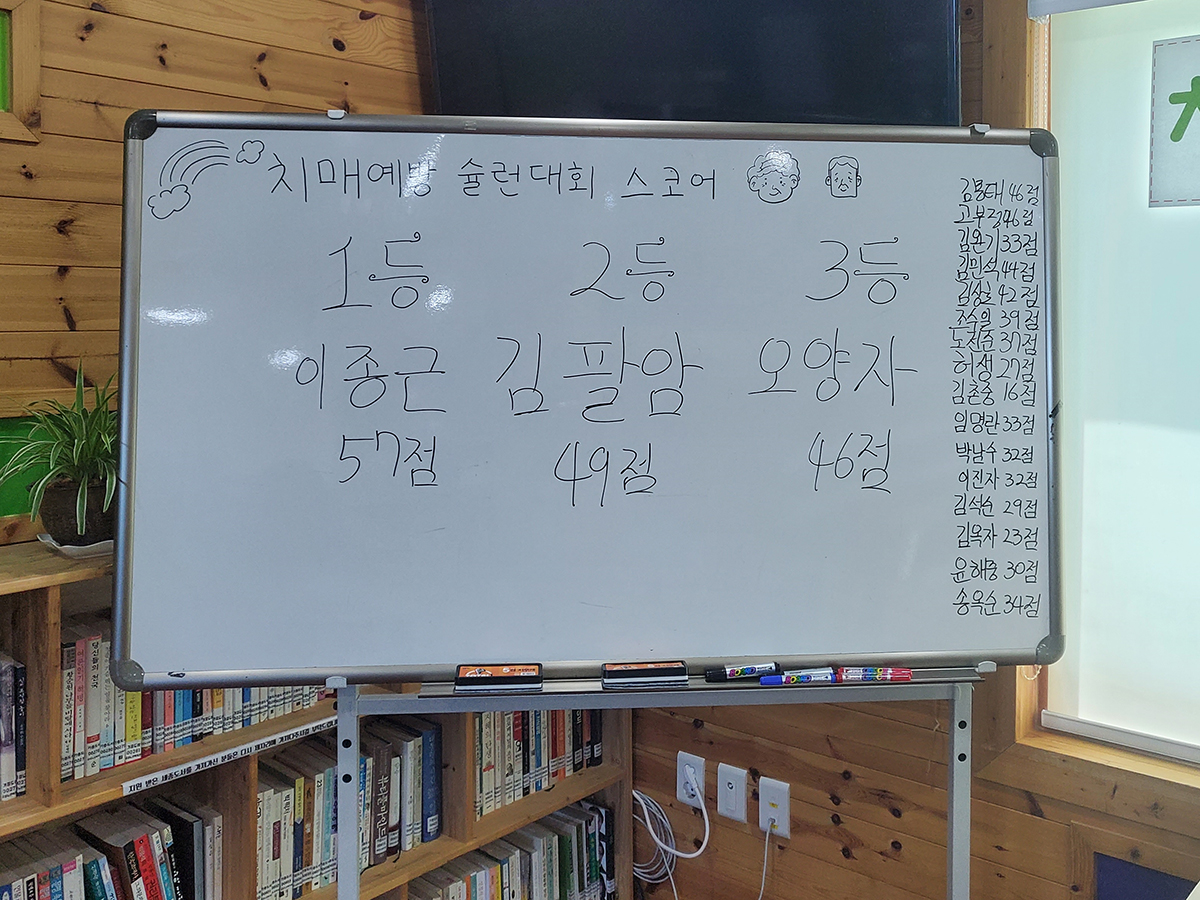 치매예방 슐런대회 스코어
1등 2등 3등
이종근 김팔암 오양자
57점 49점 46점
김용태 46점
고부정 46점
김완기 33점
김민석 44점
김상호 42점
조수일 39점
노선준 37점
허생 27점
김촌중 16점
임명란 33점
박남수 32점
이진자 32점
김석순 29점
김옥자 23점
윤해중 30점
송옥순 34점